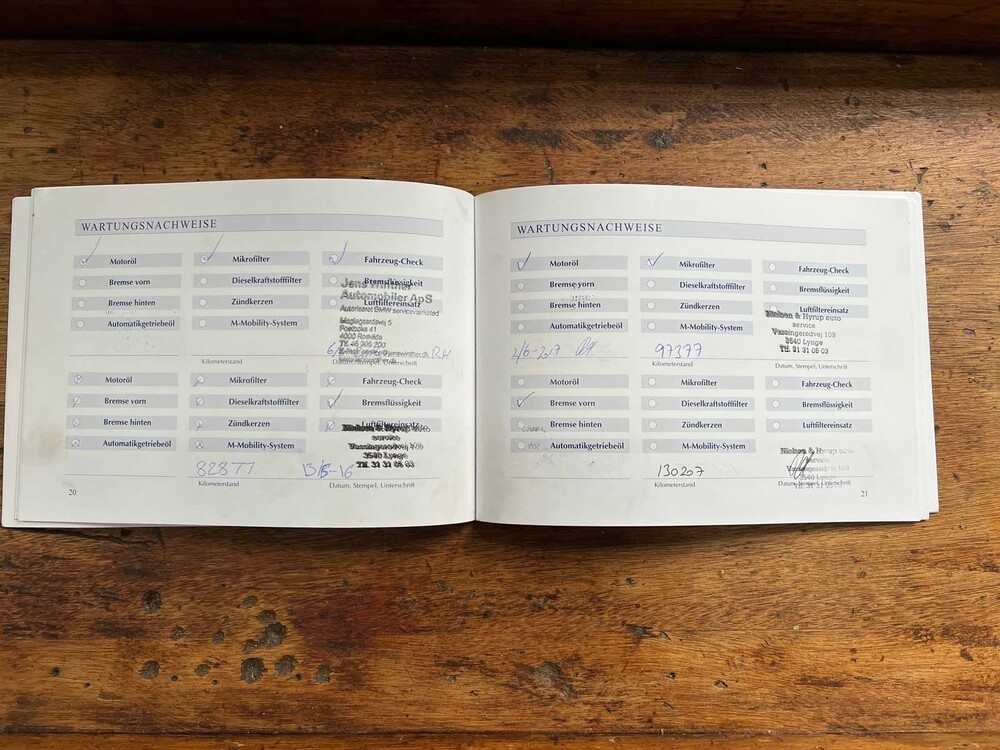 WARTUNGSNACHWEISE
Motoröl Mikrofilter Fahrzeug-Check
Bremse vorn Dieselkraftstofffilter Bremsflüssigkeit
Bremse hinten Zündkerzen Luftfiltereinsatz
Automatikgetriebeöl M-Mobility-System
Jens Winther
Automobiler ApS
Autoriseret BMW serviceværksted
Postboks 41
4000 Roskilde
Kilometerstand Datum, Stempel, Unterschrift
Motoröl Mikrofilter Fahrzeug-Check
Bremse vorn Dieselkraftstofffilter Bremsflüssigkeit
Bremse hinten Zündkerzen Luftfiltereinsatz
Automatikgetriebeöl M-Mobility-System
Nielsen & Hyrup auto
service
Vassingerødvej 109
3540 Lynge
Tlf. 31 31 06 03
82877
Kilometerstand Datum, Stempel, Unterschrift
20
WARTUNGSNACHWEISE
Motoröl Mikrofilter Fahrzeug-Check
Bremse vorn Dieselkraftstofffilter Bremsflüssigkeit
Bremse hinten Zündkerzen Luftfiltereinsatz
Automatikgetriebeöl M-Mobility-System
Nielsen & Hyrup auto
service
Vassingerødvej 109
3540 Lynge
Tlf. 31 31 06 03
2/6-2017 97377
Kilometerstand Datum, Stempel, Unterschrift
Motoröl Mikrofilter Fahrzeug-Check
Bremse vorn Dieselkraftstofffilter Bremsflüssigkeit
Bremse hinten Zündkerzen Luftfiltereinsatz
Automatikgetriebeöl M-Mobility-System
Nielsen & Hyrup auto
service
Vassingerødvej 109
3540 Lynge
130207
Kilometerstand Datum, Stempel, Unterschrift
21